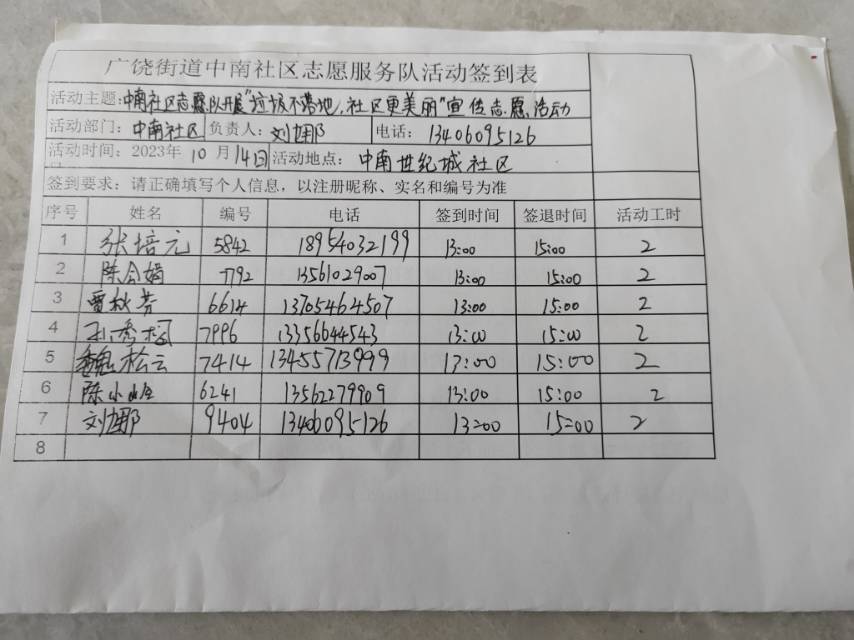 广饶街道中南社区志愿服务队活动签到表
活动主题:中南社区志愿队开展"垃圾不落地,社区更美丽"宣传志愿活动
活动部门:中南社区 负责人:刘娜 电话:13406095126
活动时间:2023年10月14日 活动地点:中南世纪城社区
签到要求:请正确填写个人信息,以注册昵称、实名和编号为准
序号 姓名 编号 电话 签到时间 签退时间 活动工时
1 张培元 5842 18954032199 13:00 15:00 2
2 陈会娟 7792 13561029007 13:00 15:00 2
3 贾秋芳 6614 13705464507 13:00 15:00 2
4 孙秀 7996 13356644543 13:00 15:00 2
5 魏松云 7414 13455713999 13:00 15:00 2
6 陈小 6241 13562279909 13:00 15:00 2
7 刘娜 9404 13406095126 13:00 15:00 2
8